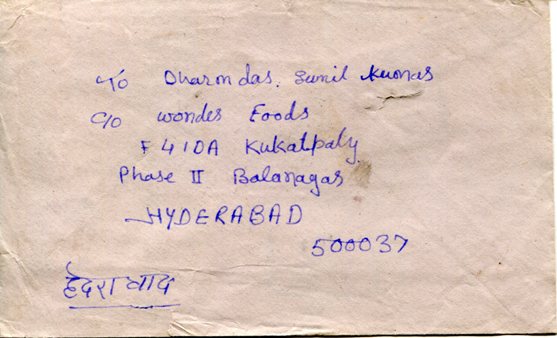 To Dharmdas. Sunil Kumar
C/o wonder Foods
F 41 IDA Kukatpaly
Phase II Balanagar
HYDERABAD
500037
हैदराबाद